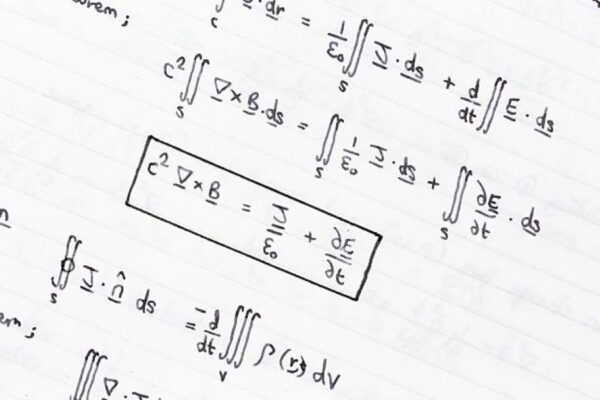 ∫_c · dr = 1/ε₀ ∬_S J · ds + d/dt ∬ E · ds
c² ∬_S ∇ × B · ds = ∬_S 1/ε₀ J · ds + ∬_S ∂E/∂t · ds
c² ∇ × B = J/ε₀ + ∂E/∂t
∯_S J · n̂ ds = -d/dt ∭_V ρ(r) dV
∭ ∇ ·